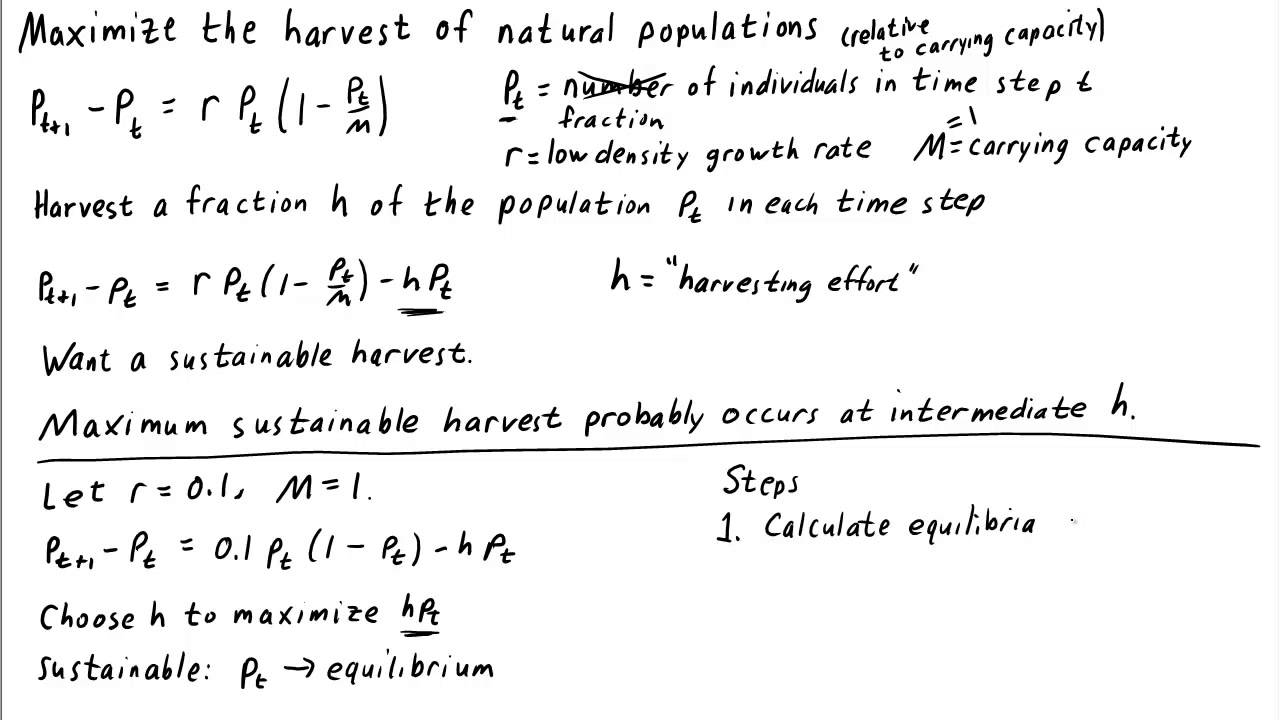 Maximize the harvest of natural populations (relative to carrying capacity)
P_{t+1} - P_t = r P_t (1 - P_t/M)
P_t = number of individuals in time step t
fraction
r = low density growth rate
=1
M = carrying capacity
Harvest a fraction h of the population P_t in each time step
P_{t+1} - P_t = r P_t (1 - P_t/M) - h P_t
h = "harvesting effort"
Want a sustainable harvest.
Maximum sustainable harvest probably occurs at intermediate h.
Let r = 0.1, M = 1.
P_{t+1} - P_t = 0.1 P_t (1 - P_t) - h P_t
Choose h to maximize hP_t
sustainable: P_t → equilibrium
Steps
1. Calculate equilibria